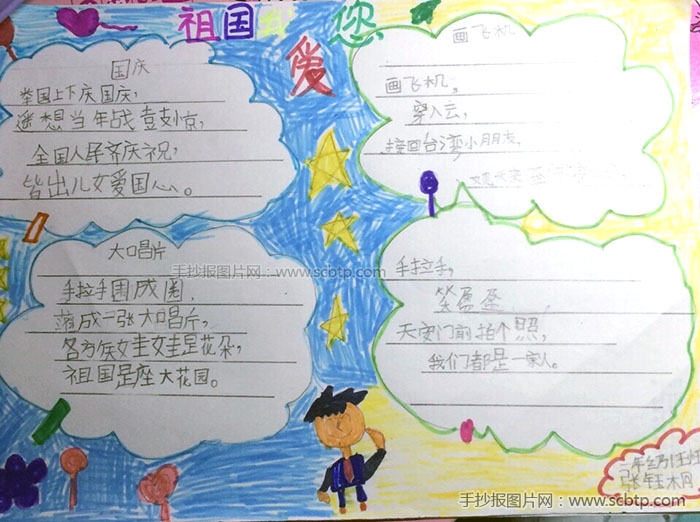 祖国
爱
您
国庆
举国上下庆国庆，
遥想当年战鼓惊，
全国人民齐庆祝，
皆出儿女爱国心。
大口唱片
手拉手围成圈，
荡成一张大口唱片，
各方侯娃娃是花朵，
祖国是座大花园。
画飞机
画飞机，
穿入云，
接回台湾小朋友，
手拉手，
笑盈盈，
天安门前拍个照，
我们都是一家人。
手抄报图片网：www.scbtp.com
手抄报图片网：www.scbtp.com